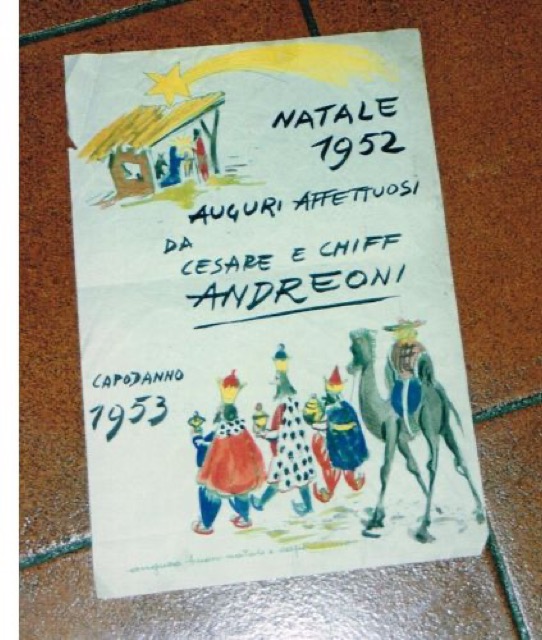 NATALE
1952
AUGURI AFFETTUOSI
DA
CESARE E CHIFF
ANDREONI
CAPODANNO
1953
buon natale e